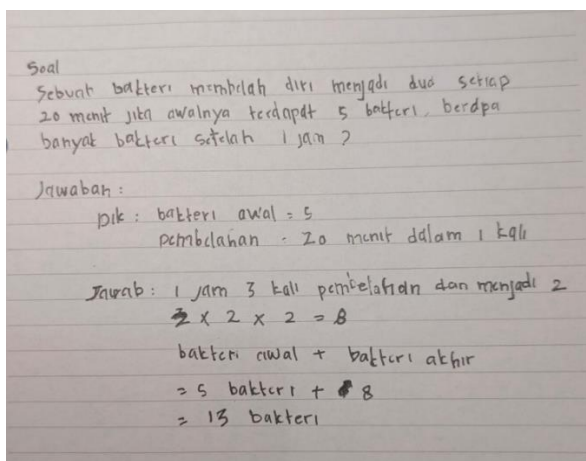 Soal
Sebuah bakteri membelah diri menjadi dua setiap
20 menit jika awalnya terdapat 5 bakteri, berapa
banyak bakteri setelah 1 jam ?
Jawaban :
Dik : bakteri awal = 5
pembelahan = 20 menit dalam 1 kali
Jawab : 1 jam 3 kali pembelahan dan menjadi 2
2 x 2 x 2 = 8
bakteri awal + bakteri akhir
= 5 bakteri + 8
= 13 bakteri